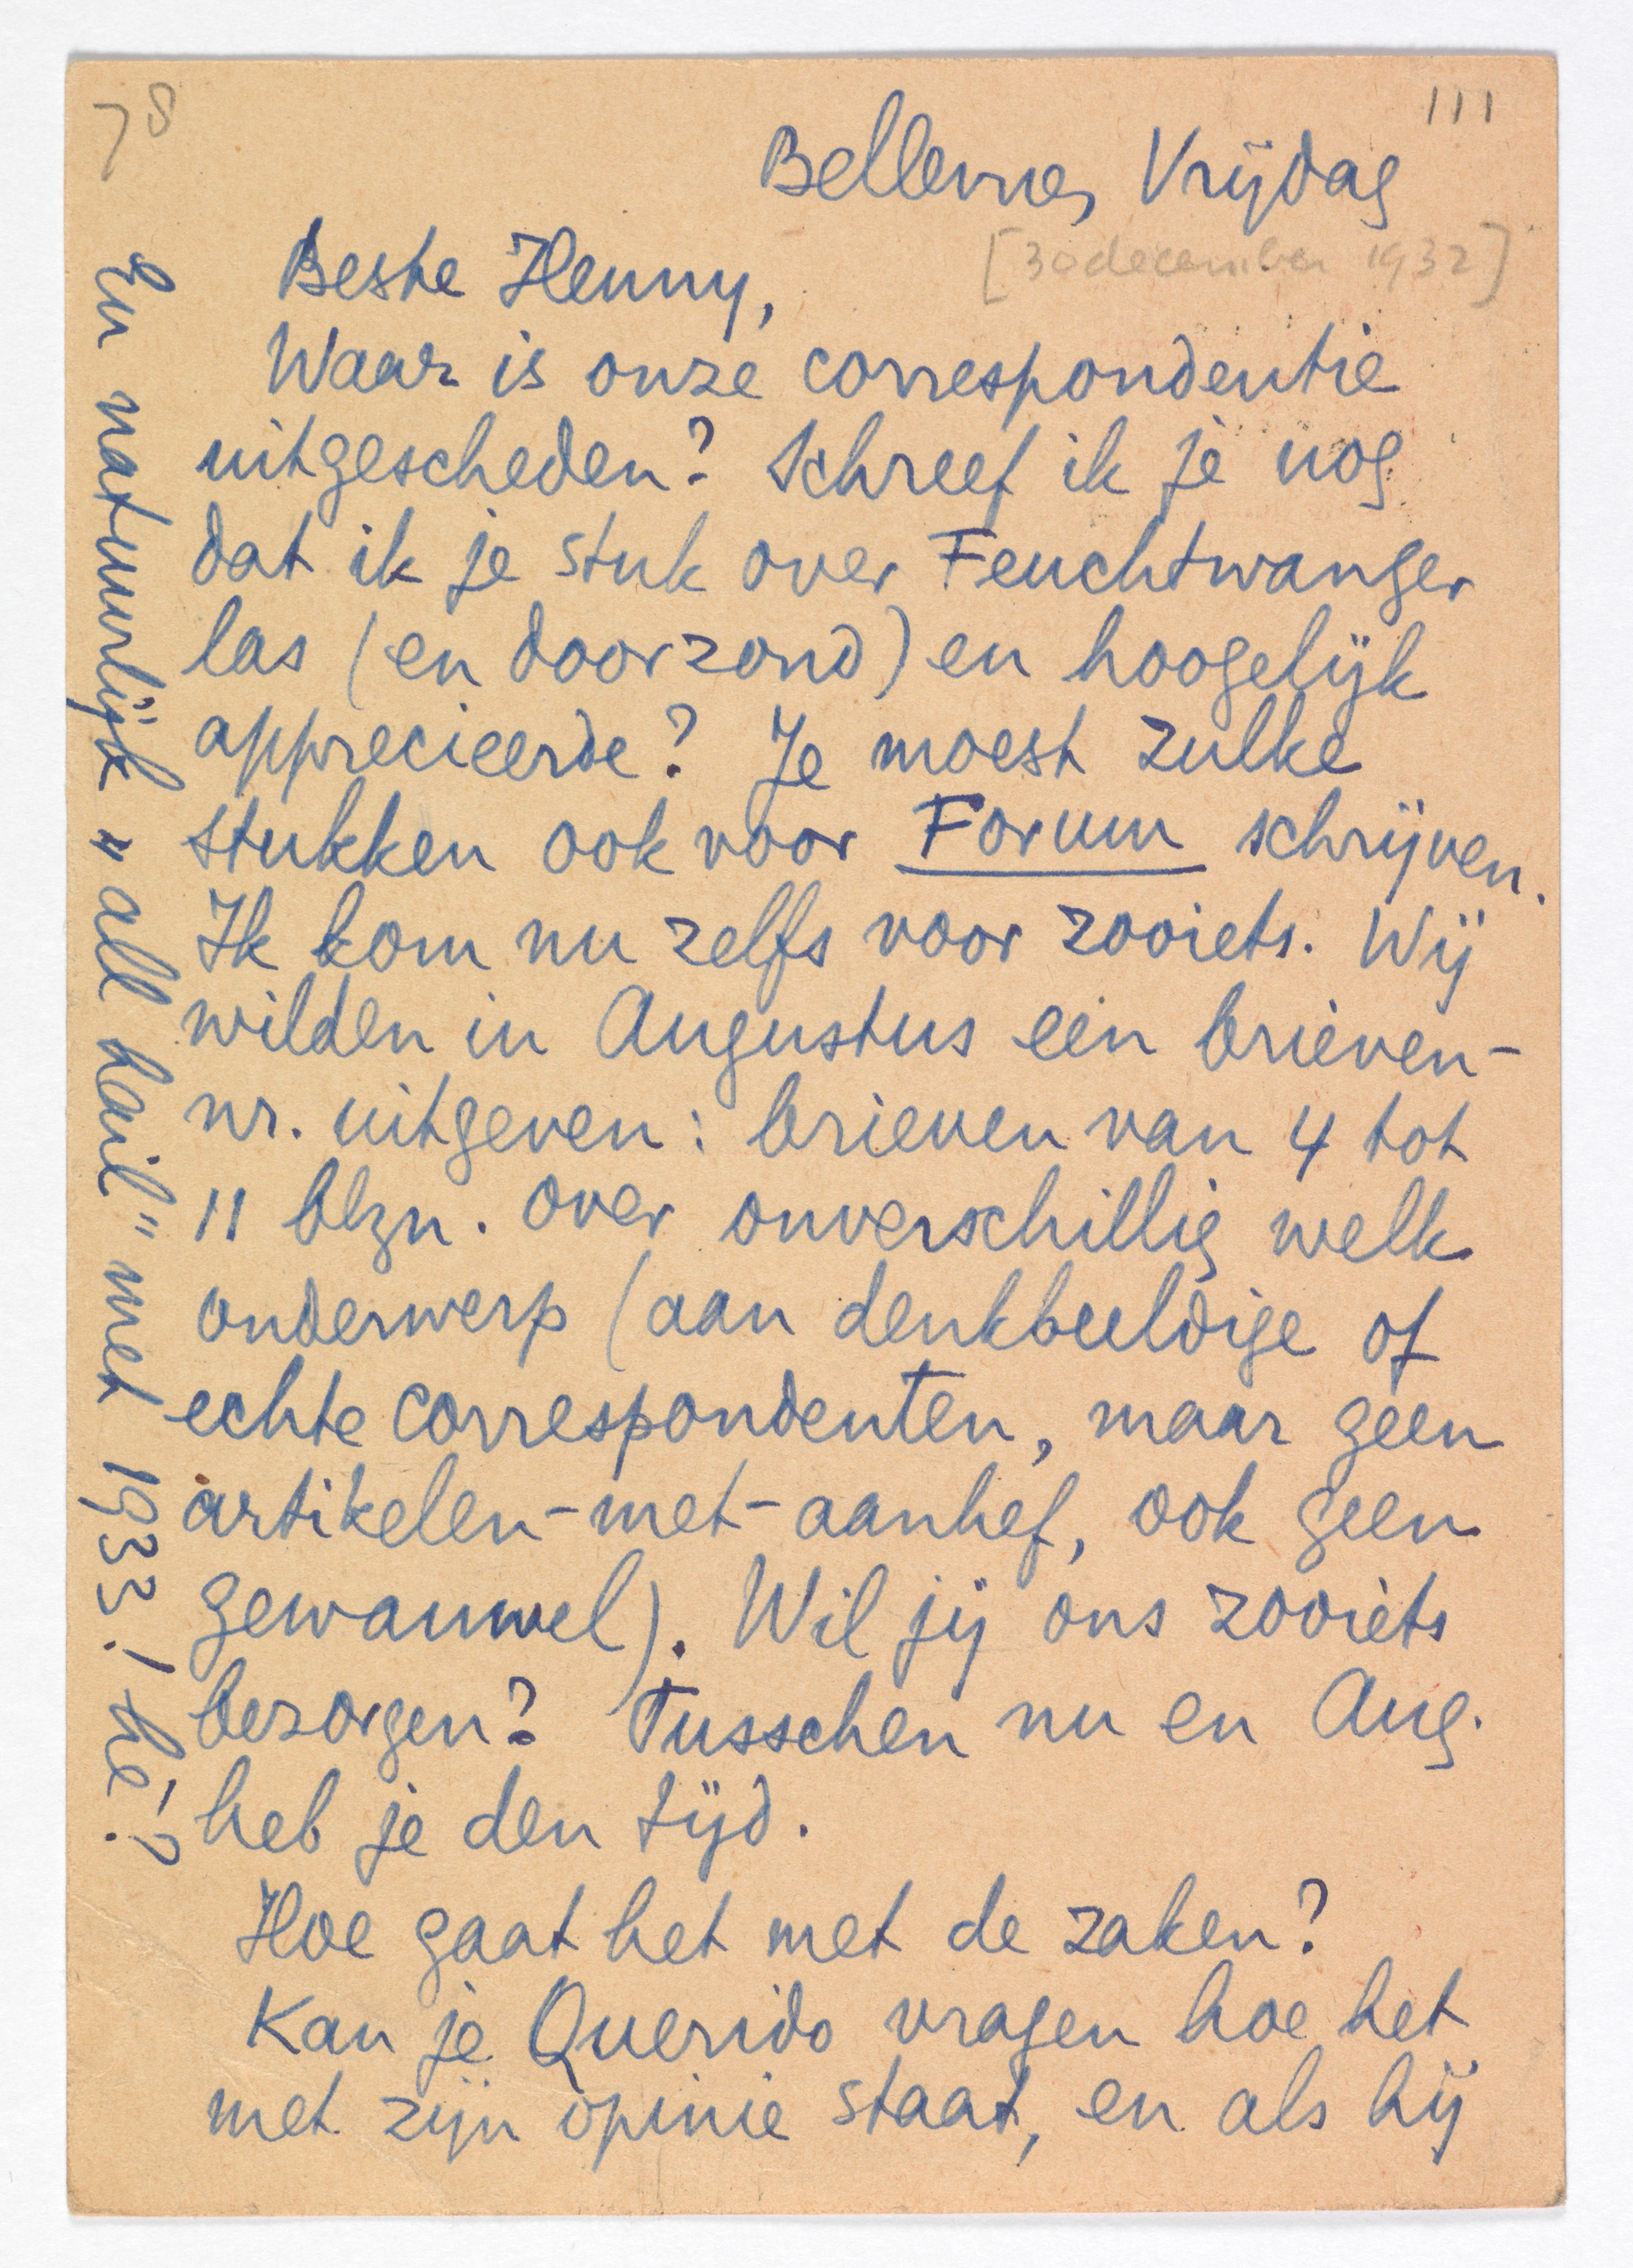 78
111
Bellevue, Vrijdag
[30 december 1932]
Beste Henny,
Waar is onze correspondentie
uitgescheden? Schreef ik je nog
dat ik je stuk over Feuchtwanger
las (en doorzond) en hoogelijk
apprecieerde? Je moest zulke
stukken ook voor Forum schrijven.
Ik kom nu zelfs voor zooiets. Wij
wilden in Augustus een brieven-
nr. uitgeven: brieven van 4 tot
11 blzn. over onverschillig welk
onderwerp (aan denkbeeldige of
echte correspondenten, maar geen
artikelen-met-aanhef, ook geen
gewauwel). Wil jij ons zooiets
bezorgen? Tusschen nu en Aug.
heb je den tijd.
Hoe gaat het met de zaken?
Kan je Querido vragen hoe het
met zijn opinie staat, en als hij
En natuurlijk "all hail" met 1933! hé!?